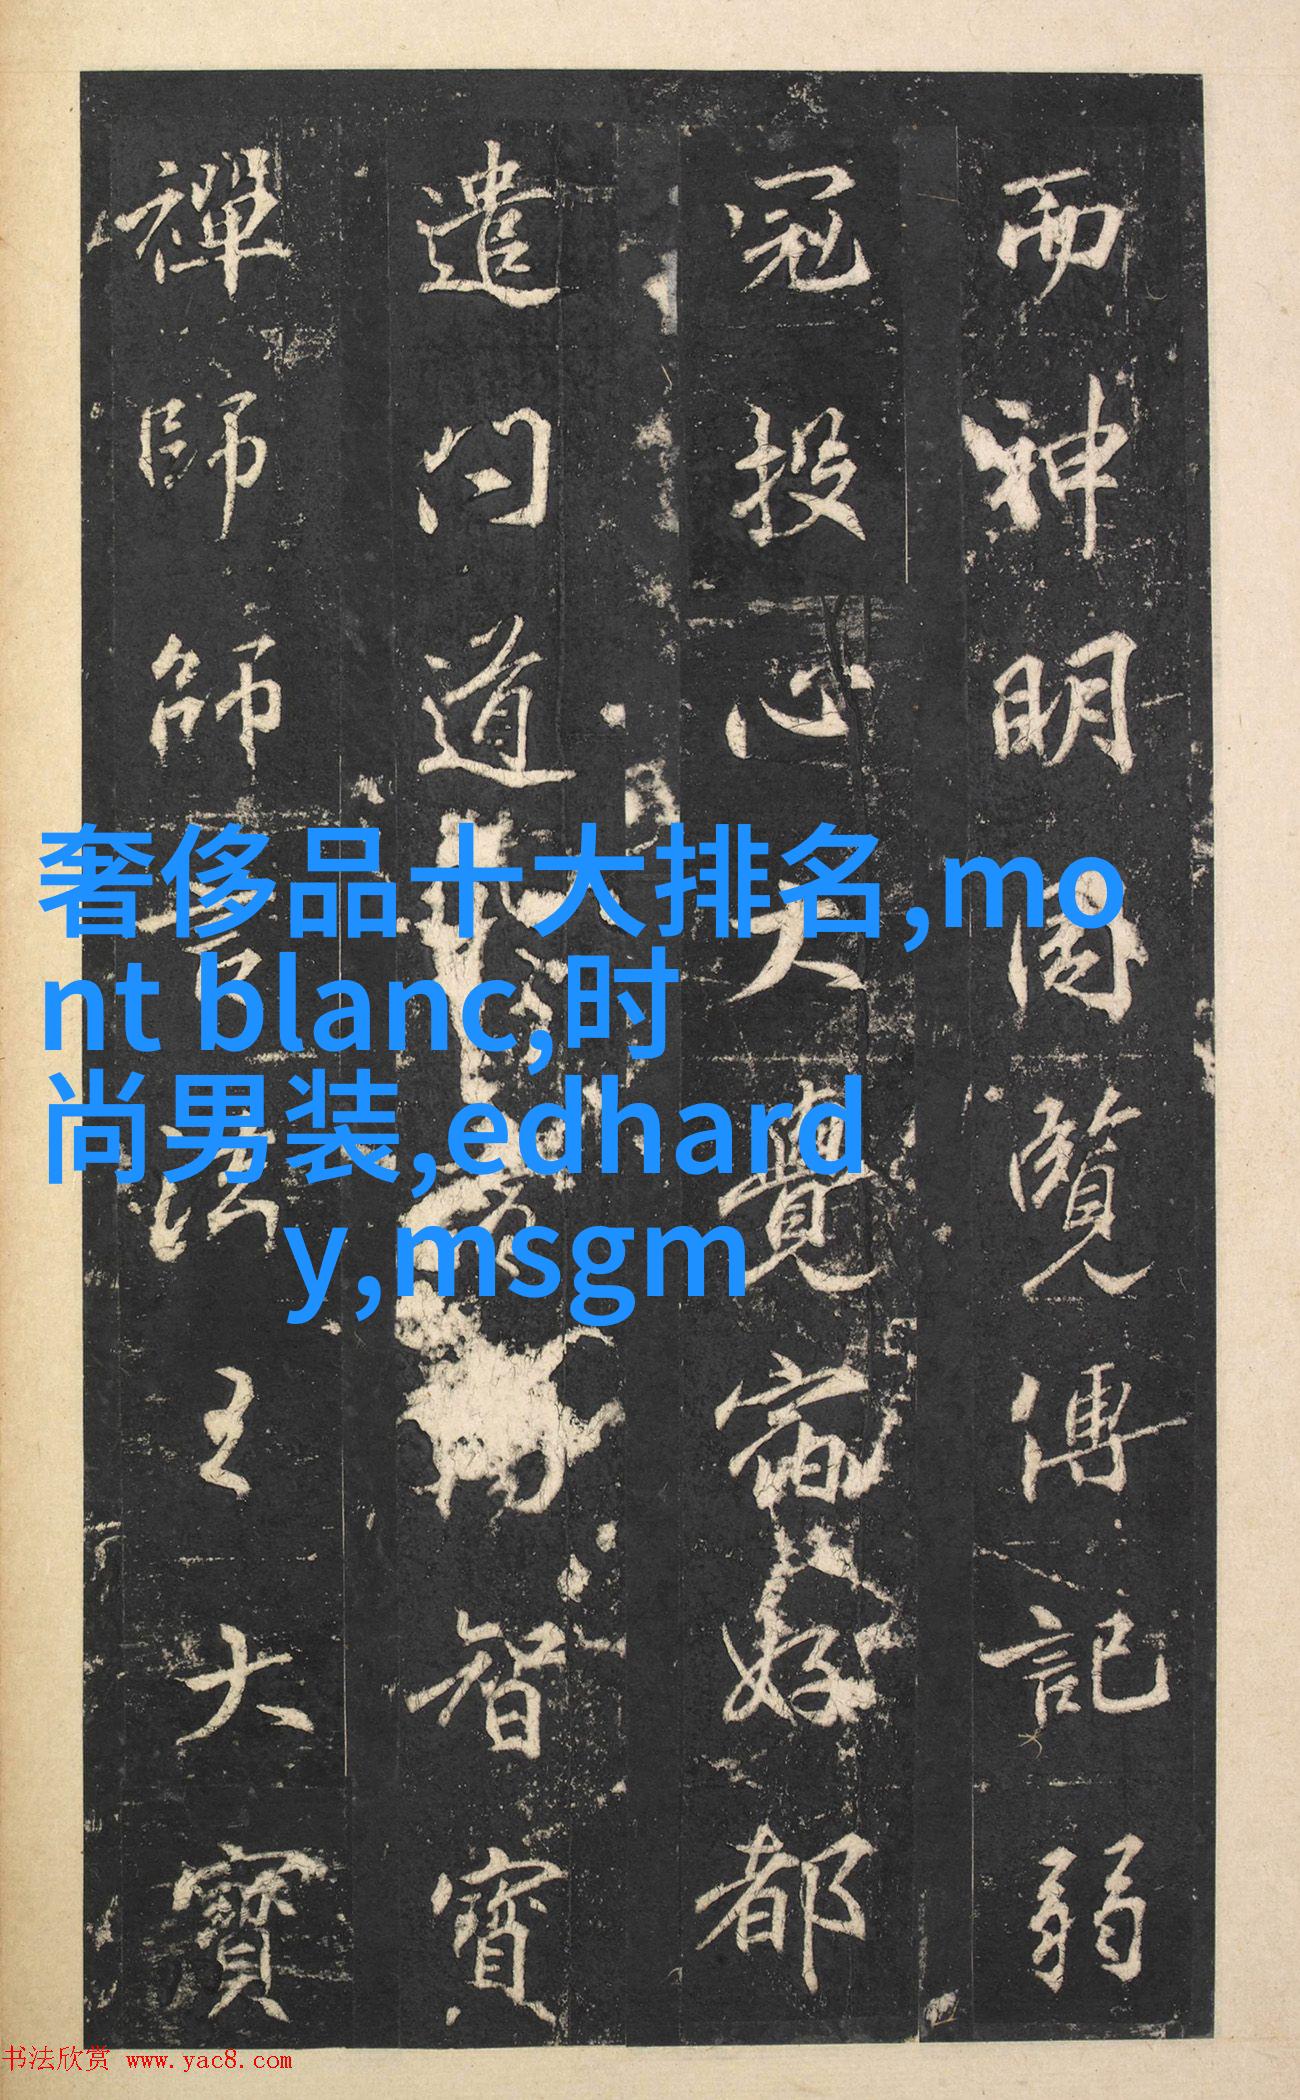 而神明周覽傳記弱
冠投心大覺宿好都
遣問道智寶
禪師師言法王大寶
奢侈品十大排名,mo
nt blanc,时
尚男装,edhard
y,msgm
书法欣赏 www.yac8.com